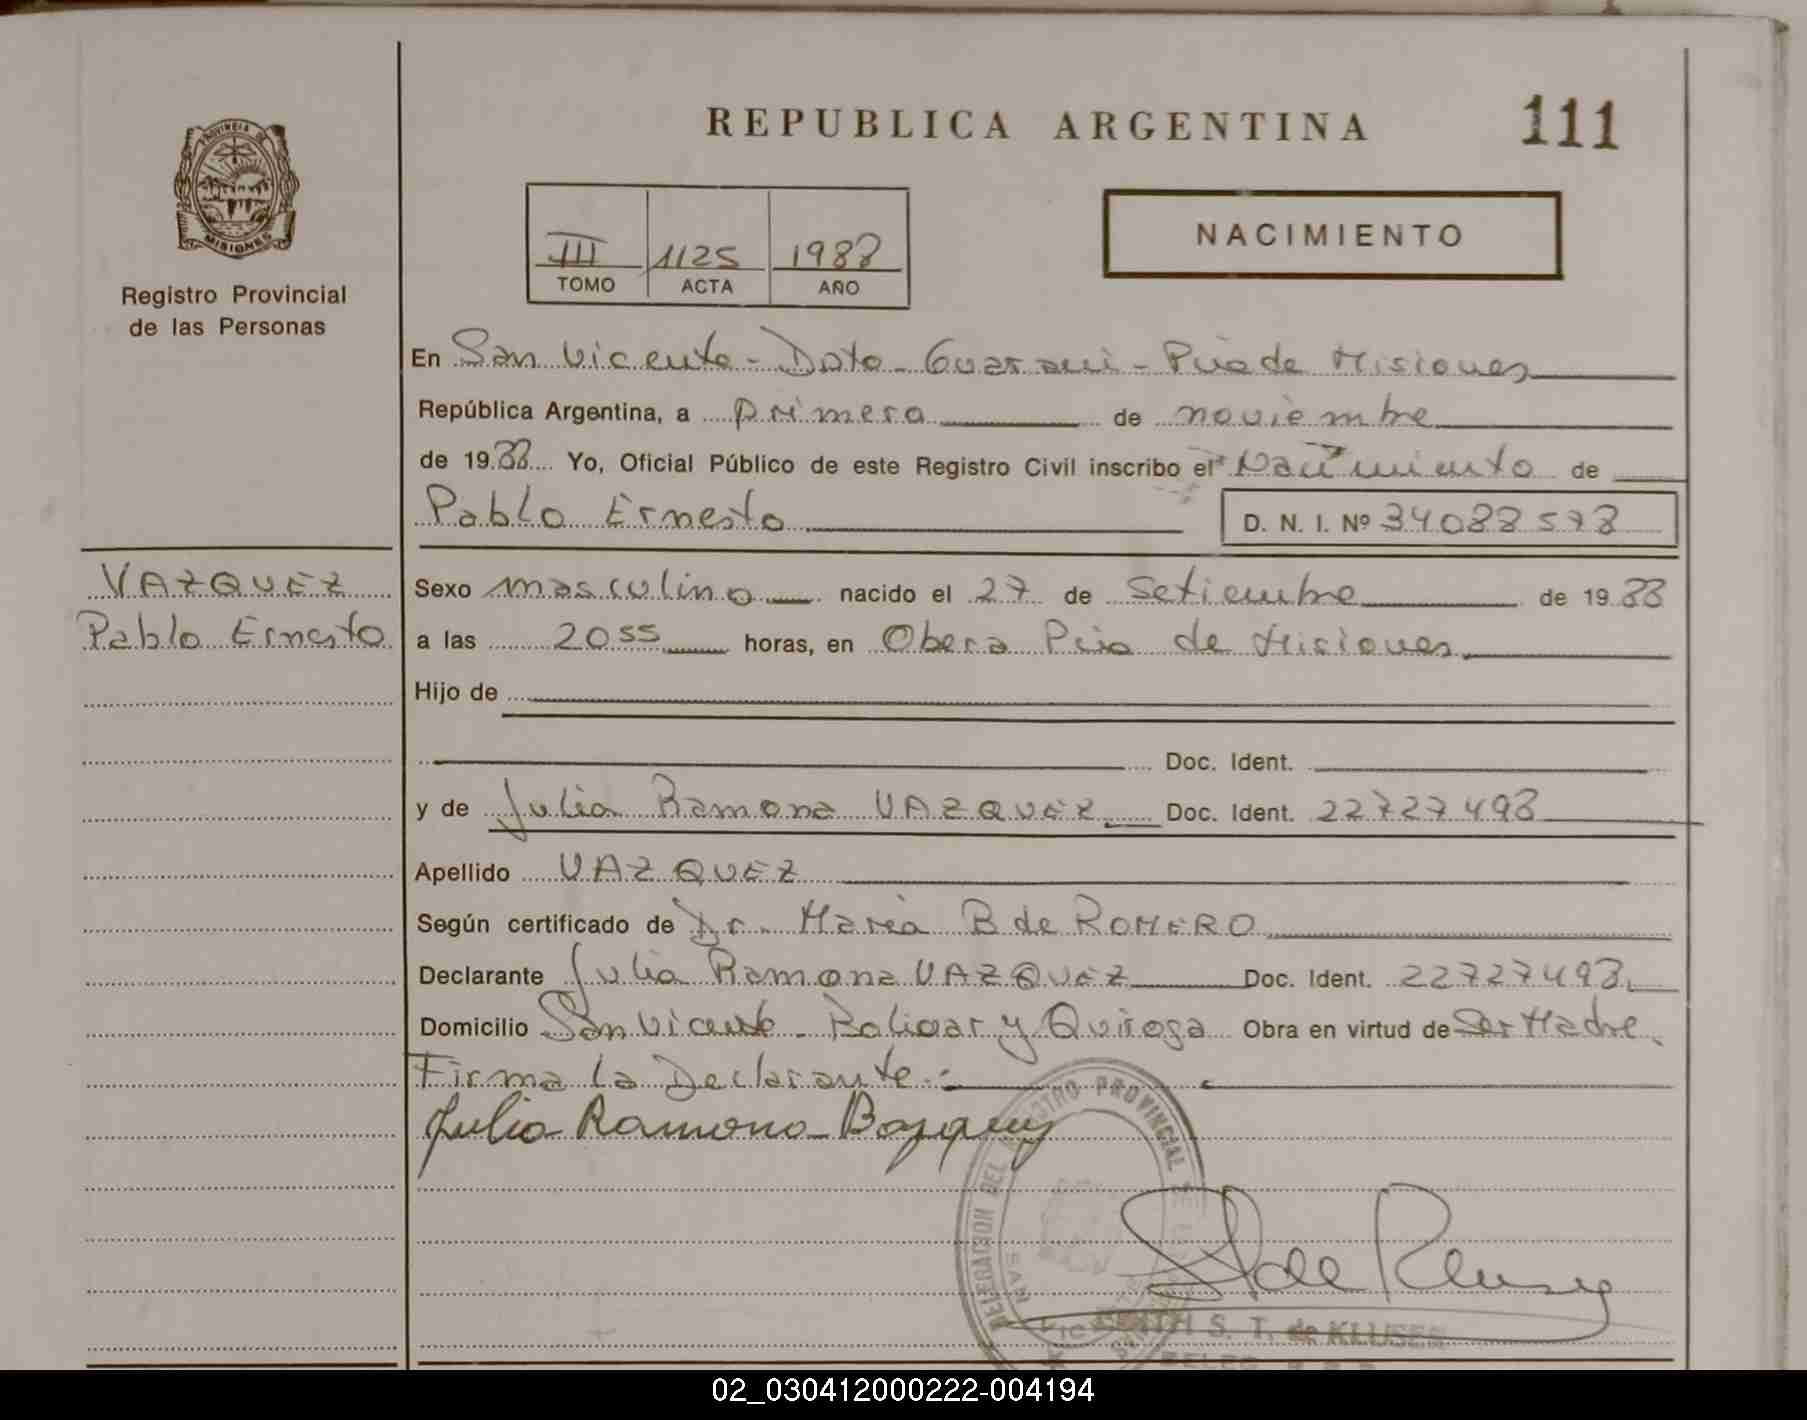 REPUBLICA ARGENTINA
111
PROVINCIA DE
MISIONES
Registro Provincial
de las Personas
III 1125 1988
TOMO ACTA AÑO
NACIMIENTO
En San Vicente - Dpto Guarani - Pcia de Misiones
República Argentina, a primero de noviembre
de 1988 Yo, Oficial Público de este Registro Civil inscribo el Nacimiento de
Pablo Ernesto D. N. I. Nº 34088578
VAZQUEZ
Pablo Ernesto
Sexo masculino nacido el 27 de Setiembre de 1988
a las 20 55 horas, en Obera Pcia de Misiones
Hijo de
Doc. Ident.
y de Julia Ramona VAZQUEZ Doc. Ident. 22727498
Apellido VAZQUEZ
Según certificado de Dr. Maria B de ROMERO
Declarante Julia Ramona VAZQUEZ Doc. Ident. 22727498
Domicilio San Vicente - Bolivar y Quiroga Obra en virtud de Ser Madre.
Firma la Declarante.-
Julia Ramona Bazquez
DELEGACION DEL REGISTRO PROVINCIAL DE
SAN
S. de Klusen
EDITH S. T. de KLUSEN
02_030412000222-004194